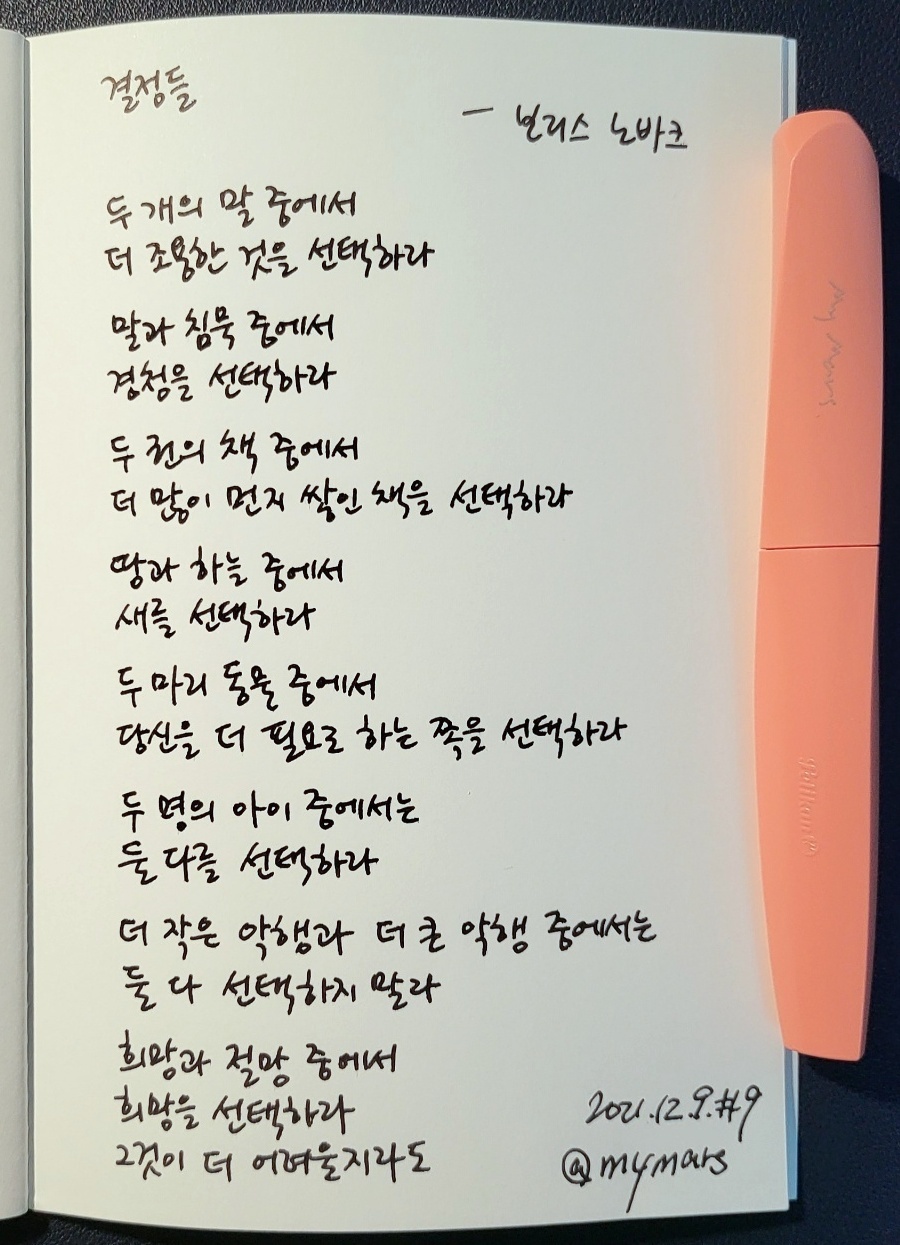 결정들
- 보리스 노바크
두 개의 말 중에서
더 조용한 것을 선택하라
말과 침묵 중에서
경청을 선택하라
두 권의 책 중에서
더 많이 먼지 쌓인 책을 선택하라
땅과 하늘 중에서
새를 선택하라
두 마리 동물 중에서
당신을 더 필요로 하는 쪽을 선택하라
두 명의 아이 중에서는
둘 다를 선택하라
더 작은 악행과 더 큰 악행 중에서는
둘 다 선택하지 말라
희망과 절망 중에서
희망을 선택하라
그것이 더 어려울지라도
2021.12.9.#9
@mymars
My Mars.
Pelikan